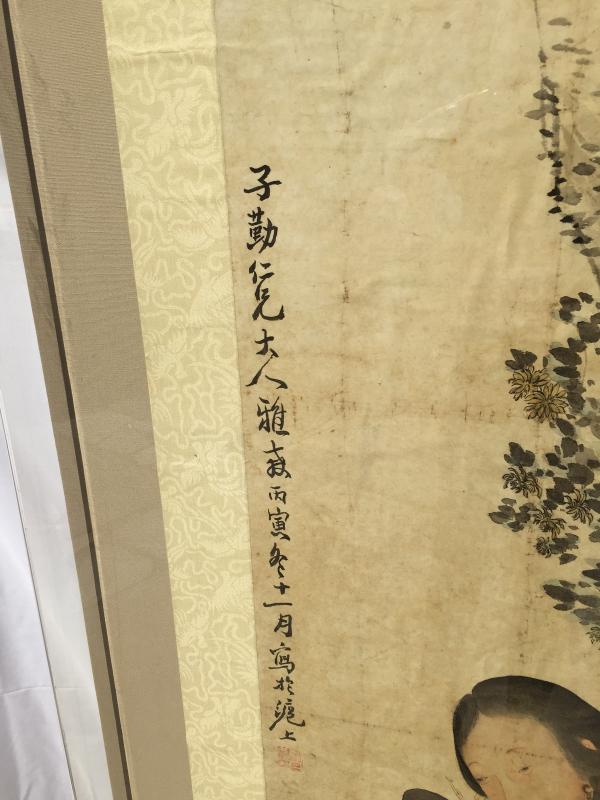 子勤仁兄大人雅教丙寅冬十一月寫於滬上